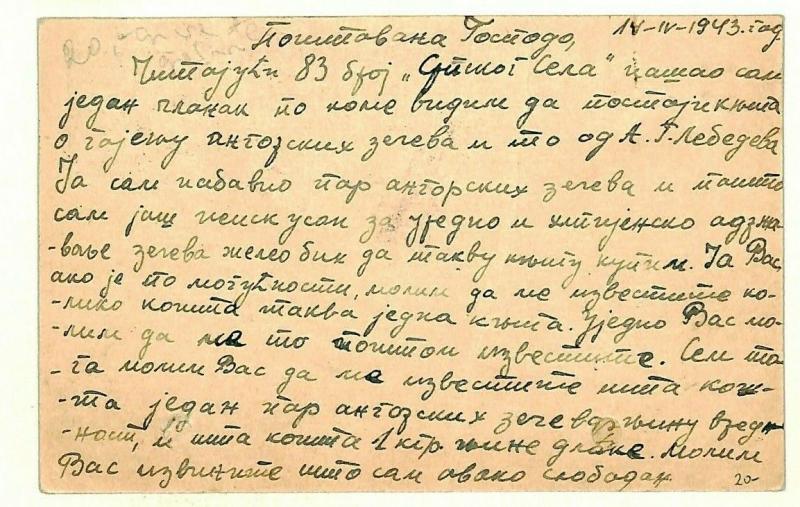 Поштована Господо, 14-IV-1943. год.
Читајући 83 број „Српског Села" нашао сам
један чланак по коме видим да постоји књига
о гајењу ангорских зечева и то од А. Г. Лебедева
Ја сам набавио пар ангорских зечева и пошто
сам још неискусан за уредно и хигијенско одржа-
-вање зечева желео бих да такву књигу купим. Ја Вас,
ако је по могућности, молим да ме известите ко-
-лико кошта таква једна књига. Уједно Вас мо-
-лим да ме то поштом известите. Сем то-
-га молим Вас да ме известите шта кош-
-та један пар ангорских зечева вред-
-ност, и шта кошта 1 кгр. њине длаке. Молим
Вас извините што сам овако слободан.
20-